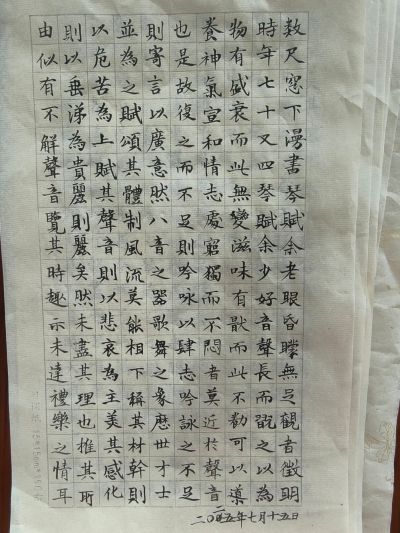 数尺窓下漫書琴賦余老眼昏矇無足觀者徵明
時年七十又四琴賦余少好音聲長而翫之以為
物有盛衰而此無變滋味有猒而此不勌可以導
養神氣宣和情志處窮獨而不悶者莫近於聲音
也是故復之而不足則吟咏以肆志吟詠之不足
則寄言以廣意然八音之器歌舞之象歷世才士
並為之賦頌其體制風流莫能相下稱其材幹則
以危苦為上賦其聲音則以悲哀為主美其感化
則以垂涕為貴麗則麗矣然未盡其理也推其所
由似有不解聲音覽其時趣示未達禮樂之情耳
二〇二五年七月十五日